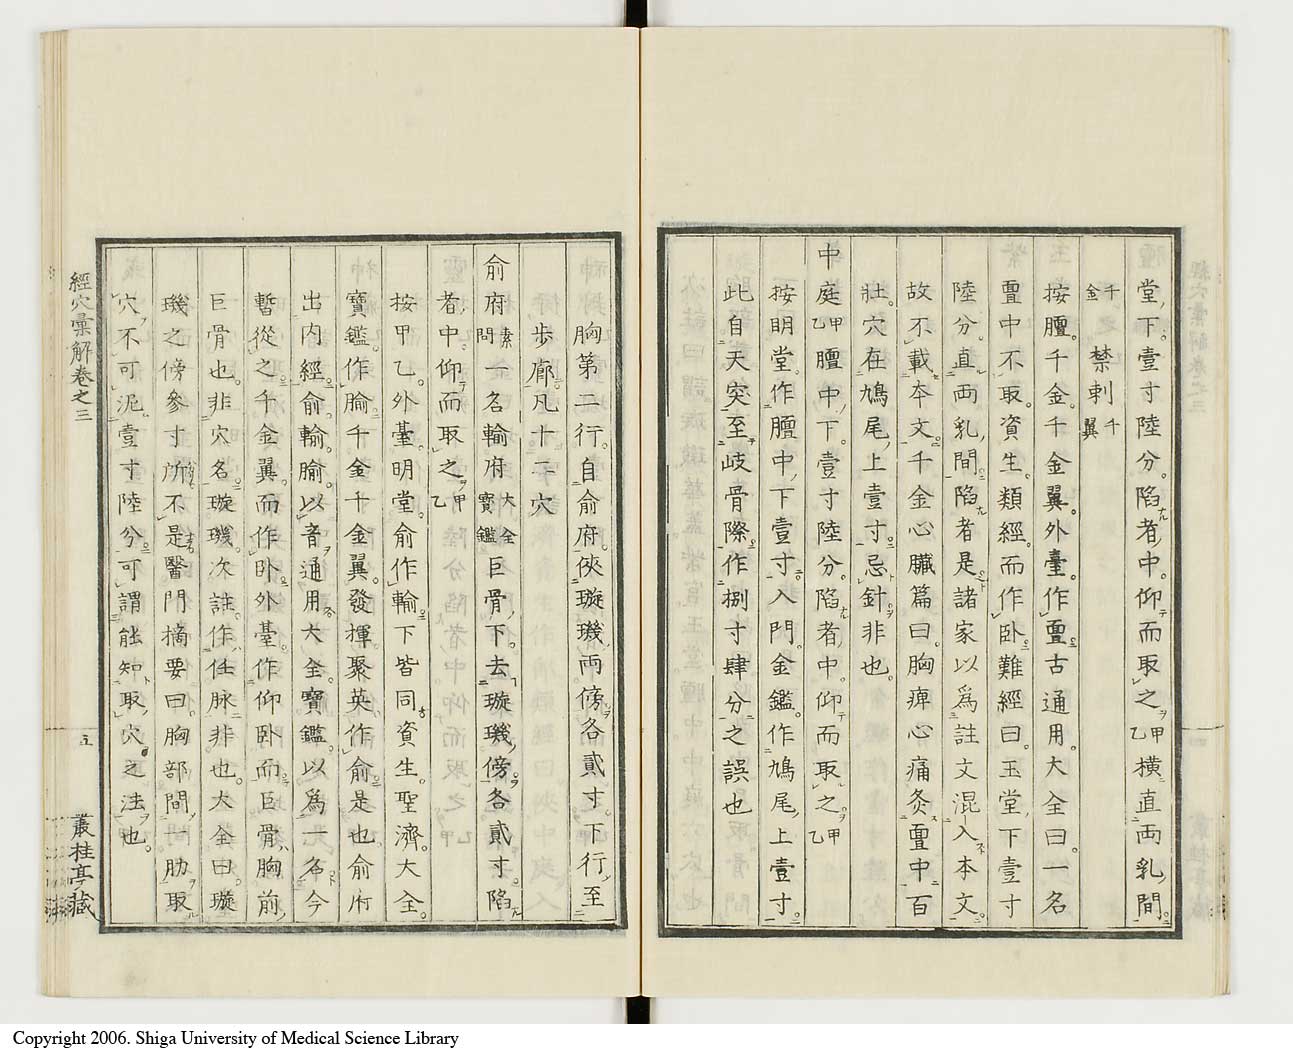 堂下壹寸陸分陷者中仰而取之甲乙橫直兩乳間
千金禁刺千翼
按膻千金千金翼外臺作亶古通用大全曰一名
亶中不取資生類經而作卧難經曰玉堂下壹寸
陸分直兩乳間陷者是諸家以爲註文混入本文
故不載本文千金心臟篇曰胸痺心痛灸亶中百
壯穴在鳩尾上壹寸忌針非也
中庭甲乙膻中下壹寸陸分陷者中仰而取之甲乙
按明堂作膻中下壹寸入門金鑑作鳩尾上壹寸
此自天突至岐骨際作捌寸肆分之誤也
胸第二行自俞府俠璇璣兩傍各貳寸下行至
步廊凡十二穴
俞府素問一名輸府大全寶鑑巨骨下去璇璣傍各貳寸陷
者中仰而取之甲乙
按甲乙外臺明堂俞作輸下皆同資生聖濟大全
寶鑑作腧千金千金翼發揮聚英作俞是也俞府
出內經俞輸腧以音通用大全寶鑑以爲一名今
暫從之千金翼而作卧外臺作仰卧而巨骨胸前
巨骨也非穴名璇璣次註作任脉非也大全曰璇
璣之傍參寸所不是醫門摘要曰胸部間一肋取
穴不可泥壹寸陸分可謂能知取穴之法也
經穴彙解卷之三
五
叢桂亭藏
Copyright 2006. Shiga University of Medical Science Library